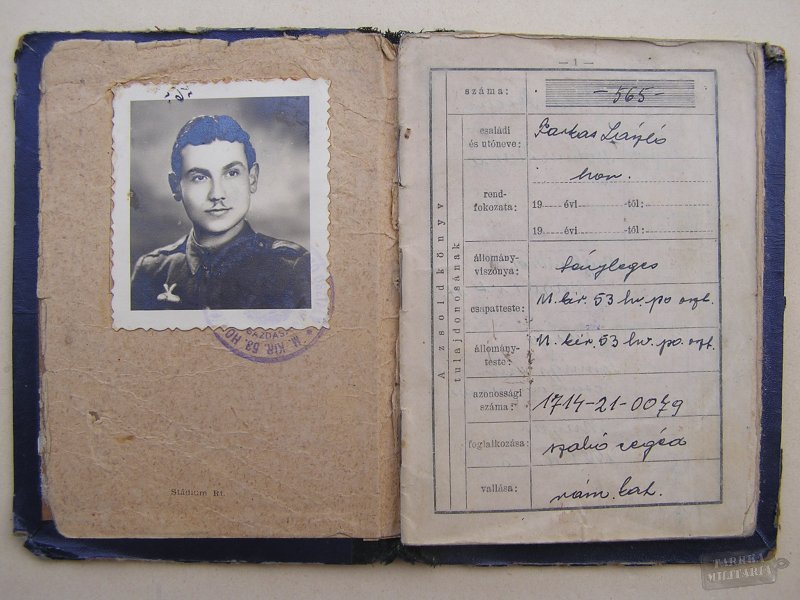 M. KIR. 53. HO
GAZDAS
Stádium Rt.
— 1 —
száma: -565-
A zsoldkönyv
tulajdonosának
családi
és utóneve: Farkas László
rend-
fokozata: hon.
19 évi -től:
19 évi -től:
állomány-
viszonya: tényleges
csapatteste: M. kir. 53 hv. po. oszt.
állomány-
teste: M. kir. 53 hv. po. oszt.
azonossági
száma: 1714-21-0079
foglalkozása: szabó segéd
vallása: róm. kat.
TARKKA
MILITARIA